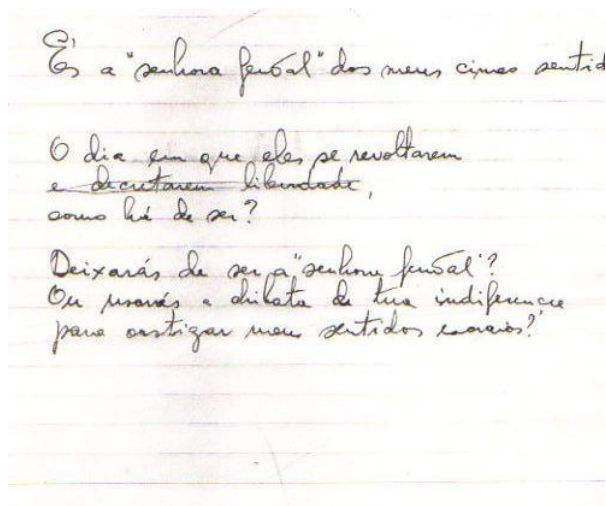 És a "senhora feudal" dos meus cinco sentid
O dia em que eles se revoltarem
e decretarem liberdade,
como há de ser?
Deixarás de ser a "senhora feudal"?
Ou usarás a chibata da tua indiferença
para castigar meus sentidos escravos?